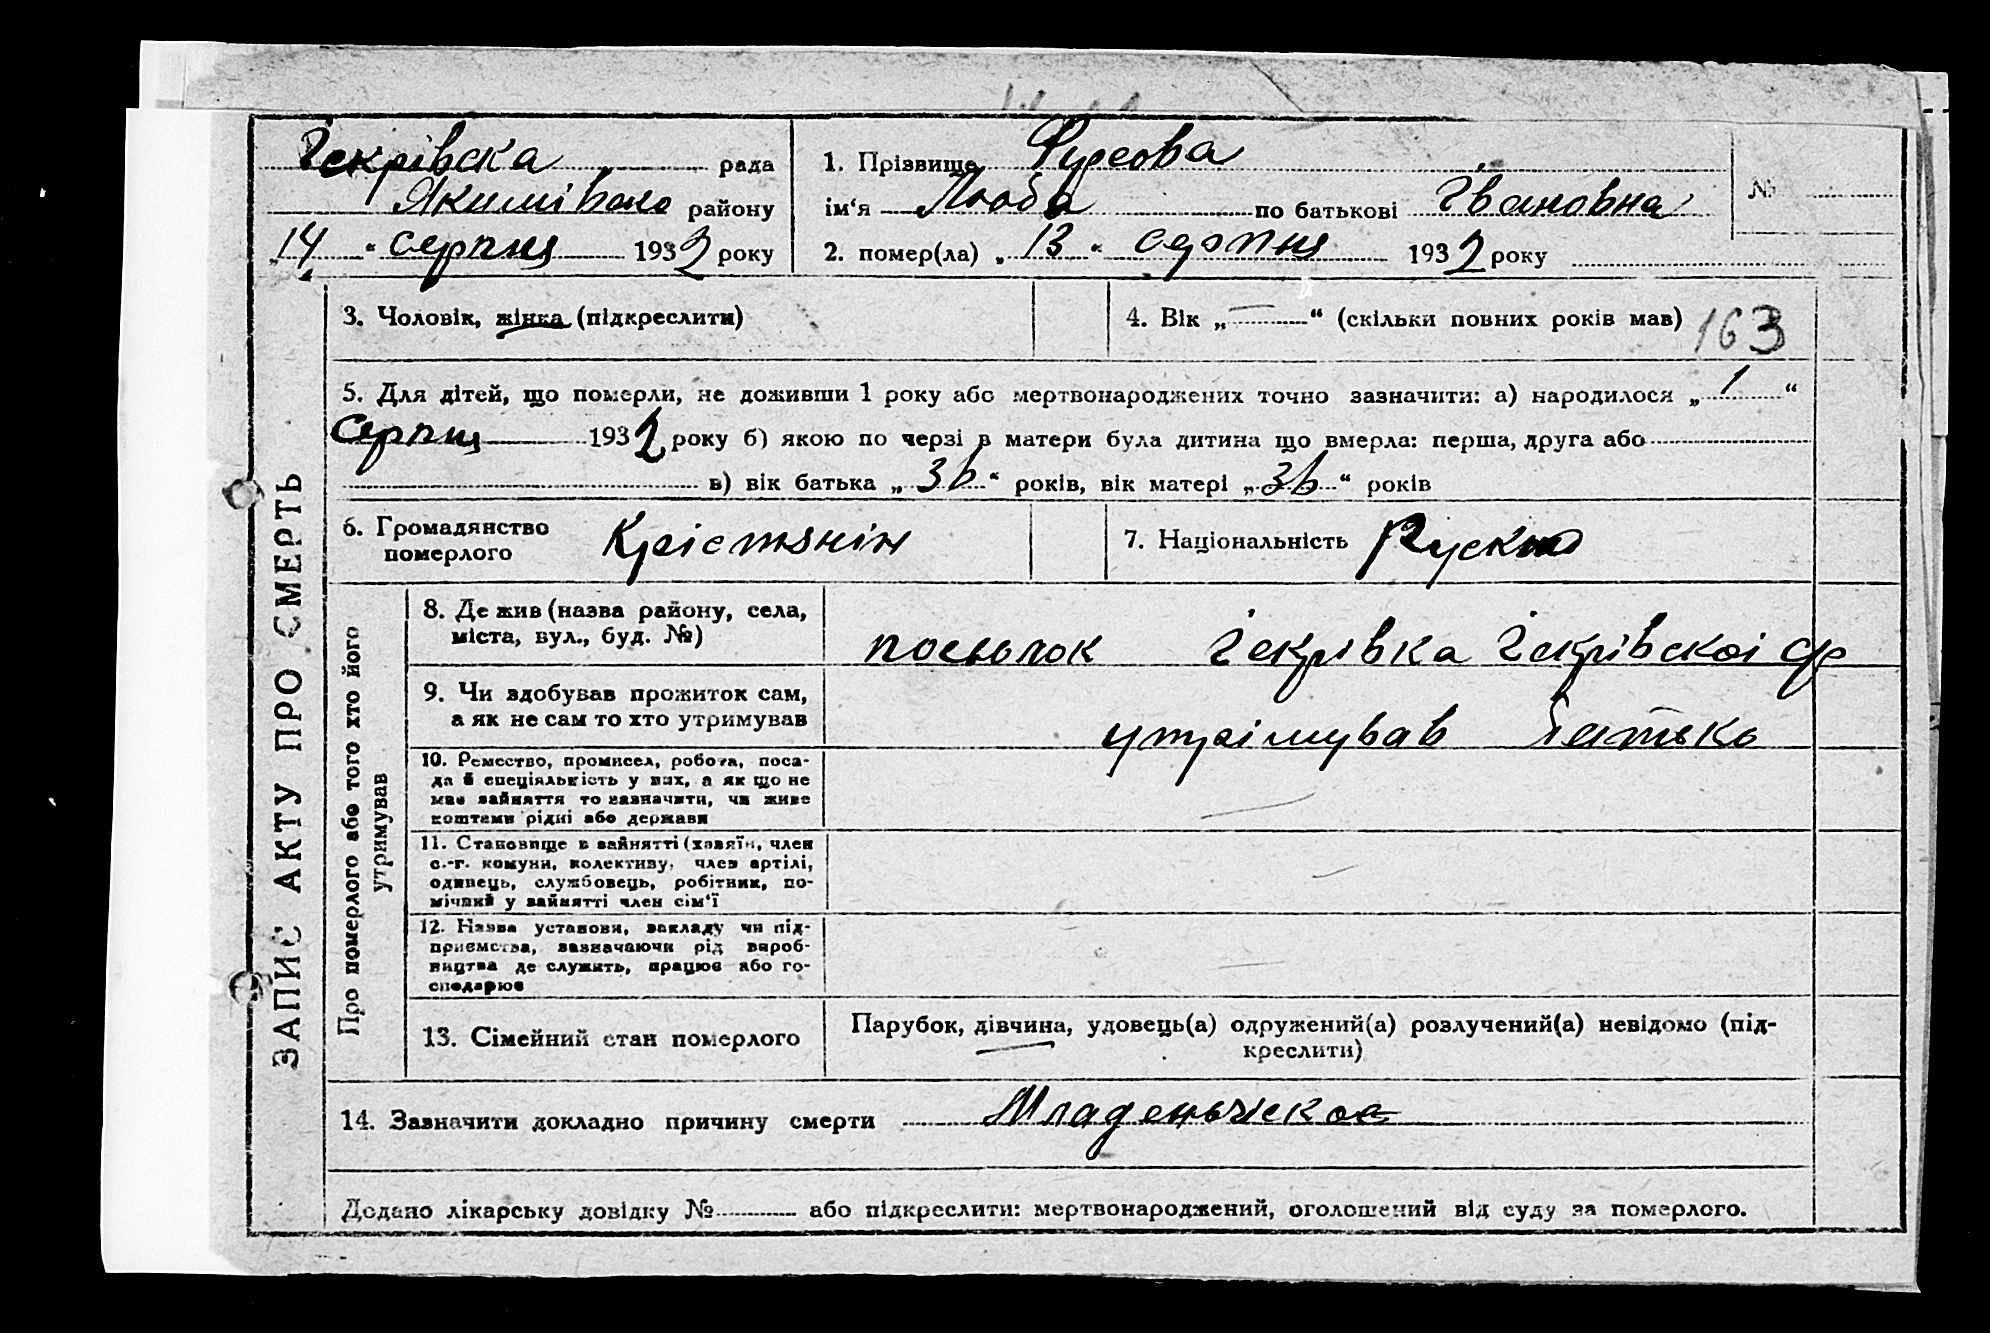 Іскрівска рада
Якимівсько району
„14“ серпня 1932 року
1. Прізвище Фурсова
ім‘я Люба по батькові Івановна
2. помер(ла) „13“ серпня 1932 року
№
3. Чоловік, жінка (підкреслити)
4. Вік „—“ (скільки повних років мав) 163
5. Для дітей, що померли, не доживши 1 року або мертвонароджених точно зазначити: а) народилося „1“
серпня 1932 року б) якою по черзі в матери була дитина що вмерла: перша, друга або
в) вік батька „36“ років, вік матері „36“ років
6. Громадянство
померлого
Крістянін
7. Національність Руска
ЗАПИС АКТУ ПРО СМЕРТЬ
Про померлого або того хто його
утримував
8. Де жив (назва району, села,
міста, вул., буд. №)
посьолок Іскрівка Іскрівскоі ср
9. Чи здобував прожиток сам,
а як не сам то хто утримував
утрімував батько
10. Ремество, промисел, робота, поса-
да й спеціяльність у них, а як що не
має зайняття то зазначити, чи живе
коштами рідні або держави
—
11. Становище в зайнятті (хазяїн, член
с.-г. комуни, колективу, член артілі,
одинець, службовець, робітник, по-
мічний у зайнятті член сім‘ї
—
12. Назва установи, закладу чи під-
приємства, зазначаючи рід вироб-
ництва де служить, працює або го-
сподарює
—
13. Сімейний стан померлого
Парубок, дівчина, удовець(а) одружений(а) розлучений(а) невідомо (під-
креслити)
14. Зазначити докладно причину смерти Младеньчіское
Додано лікарську довідку № або підкреслити: мертвонароджений, оголошений від суду за померлого.